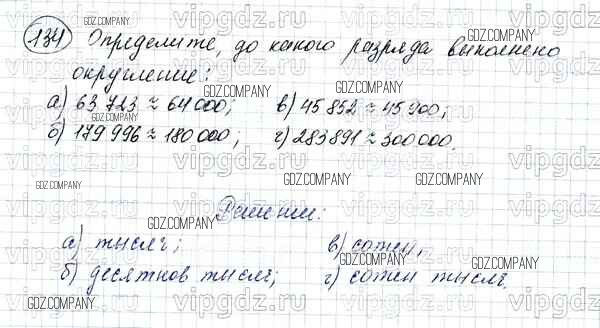 134 Определите, до какого разряда выполнено
округление:
а) 63 723 ≈ 64 000; в) 45 852 ≈ 45 900;
б) 179 996 ≈ 180 000; г) 283 891 ≈ 300 000.
Решение:
а) тысяч; в) сотен,
б) десятков тысяч; г) сотен тысяч.
GDZ.COMPANY
vipgdz.ru